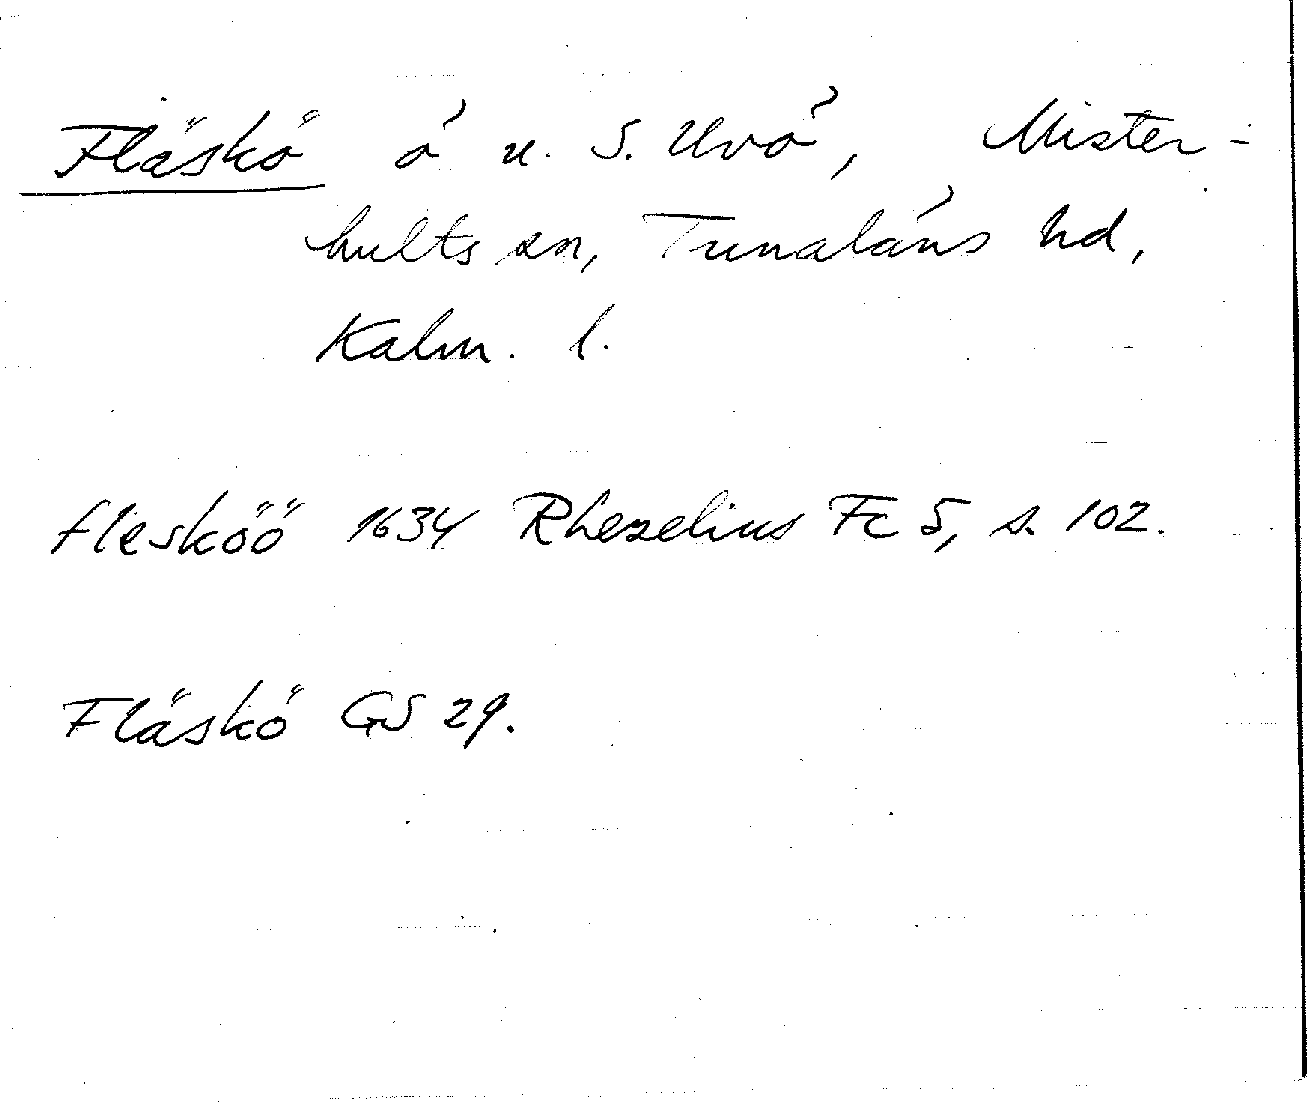 Fläskö ö n. S. Uvö, Mister-
hults sn, Tunaläns hd,
Kalm. l.
fleskôö 1634 Rhezelius Fc 5, s. 102.
Fläskö GS 29.